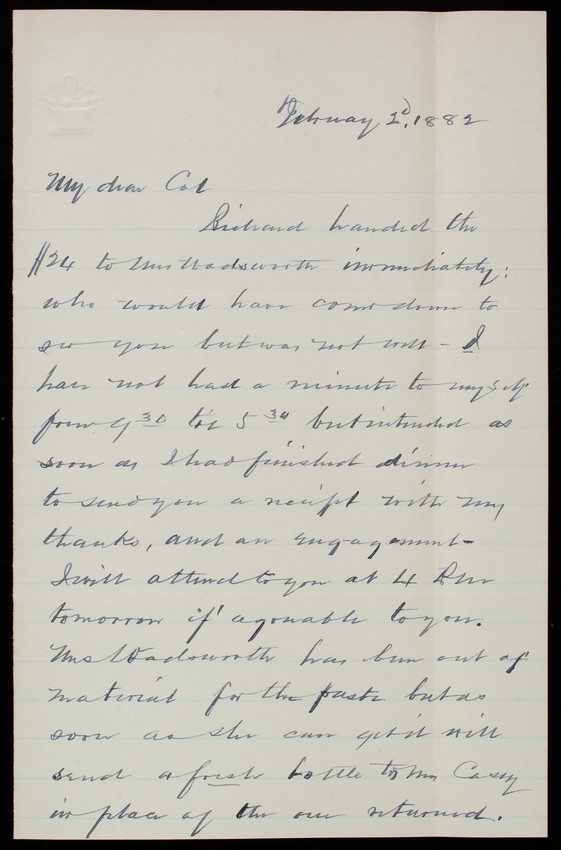 February 2d, 1882
My dear Col
Richard handed the
$24 to Mrs Wadsworth immediately:
who would have come down to
see you but was not well - I
have not had a minute to myself
from 9 30 till 5 30 but intended as
soon as I had finished dinner
to send you a receipt with my
thanks, and an engagement -
I will attend to you at 4 P.M.
tomorrow if agreeable to you.
Mrs Wadsworth has been out of
material for the paste but as
soon as she can get it will
send a fresh bottle to Mrs Casey
in place of the one returned.